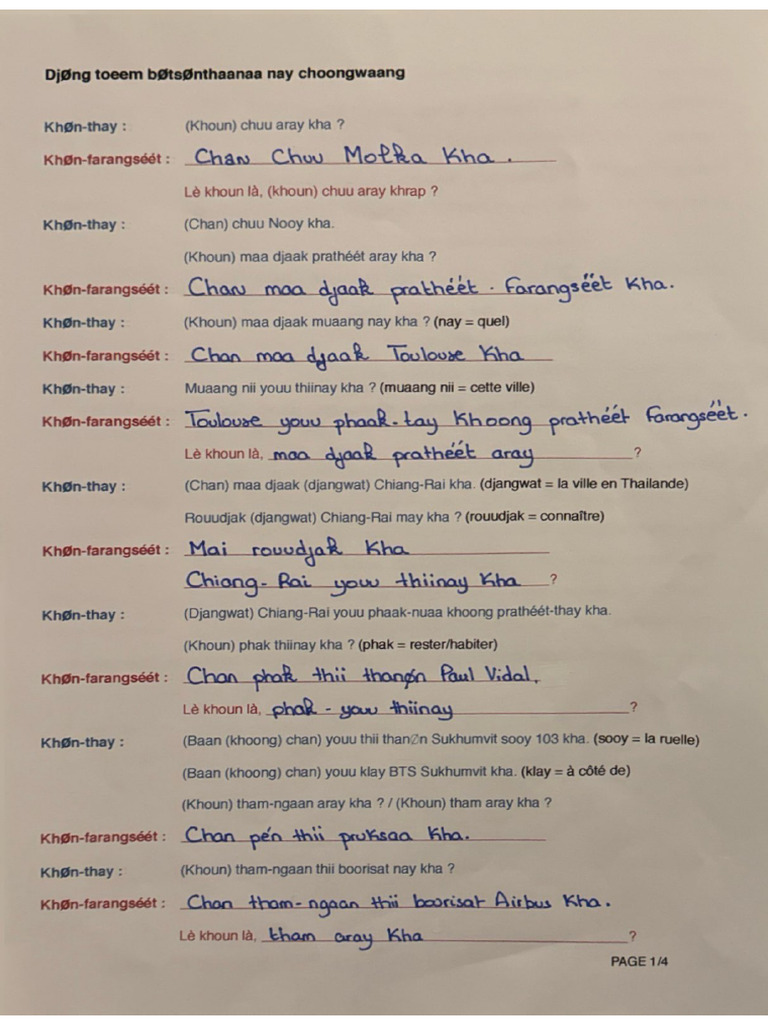 DjØng toeem bØtsØnthaanaa nay choongwaang
KhØn-thay : (Khoun) chuu aray kha ?
KhØn-farangséét : Chan Chuu Molka Kha.
Lè khoun là, (khoun) chuu aray khrap ?
KhØn-thay : (Chan) chuu Nooy kha.
(Khoun) maa djaak prathéét aray kha ?
KhØn-farangséét : Chan maa djaak prathéét . Farangséét Kha.
KhØn-thay : (Khoun) maa djaak muaang nay kha ? (nay = quel)
KhØn-farangséét : Chan maa djaak Toulouse Kha
KhØn-thay : Muaang nii youu thiinay kha ? (muaang nii = cette ville)
KhØn-farangséét : Toulouse youu phaak-tay Khoong prathéét Farangséét.
Lè khoun là, maa djaak prathéét aray ?
KhØn-thay : (Chan) maa djaak (djangwat) Chiang-Rai kha. (djangwat = la ville en Thailande)
Rouudjak (djangwat) Chiang-Rai may kha ? (rouudjak = connaître)
KhØn-farangséét : Mai rouudjak Kha
Chiang-Rai youu thiinay Kha ?
KhØn-thay : (Djangwat) Chiang-Rai youu phaak-nuaa khoong prathéét-thay kha.
(Khoun) phak thiinay kha ? (phak = rester/habiter)
KhØn-farangséét : Chan phak thii thanøn Paul Vidal.
Lè khoun là, phak - youu thiinay ?
KhØn-thay : (Baan (khoong) chan) youu thii thanØn Sukhumvit sooy 103 kha. (sooy = la ruelle)
(Baan (khoong) chan) youu klay BTS Sukhumvit kha. (klay = à côté de)
(Khoun) tham-ngaan aray kha ? / (Khoun) tham aray kha ?
KhØn-farangséét : Chan pén thii pruksaa Kha.
KhØn-thay : (Khoun) tham-ngaan thii boorisat nay kha ?
KhØn-farangséét : Chan tham-ngaan thii boorisat Airbus Kha.
Lè khoun là, tham aray Kha ?
PAGE 1/4